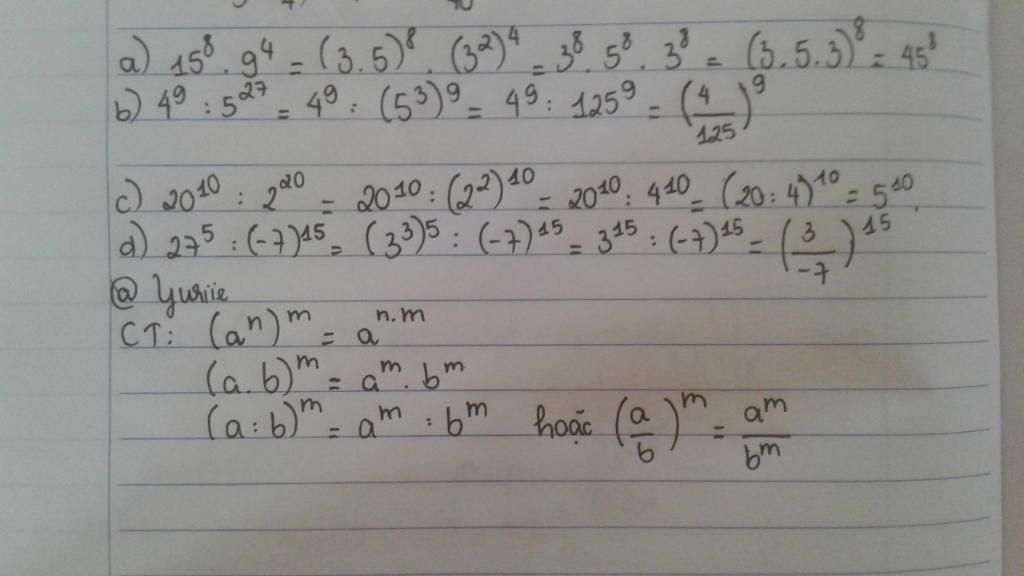 a) 15⁸ . 9⁴ = (3.5)⁸ . (3²)⁴ = 3⁸ . 5⁸ . 3⁸ = (3.5.3)⁸ = 45⁸
b) 4⁹ : 5²⁷ = 4⁹ : (5³)⁹ = 4⁹ : 125⁹ = (4/125)⁹
c) 20¹⁰ : 2²⁰ = 20¹⁰ : (2²)¹⁰ = 20¹⁰ : 4¹⁰ = (20 : 4)¹⁰ = 5¹⁰.
d) 27⁵ : (-7)¹⁵ = (3³)⁵ : (-7)¹⁵ = 3¹⁵ : (-7)¹⁵ = (3/-7)¹⁵
@ Yuriie
CT: (aⁿ)ᵐ = aⁿ·ᵐ
(a.b)ᵐ = aᵐ . bᵐ
(a:b)ᵐ = aᵐ : bᵐ hoặc (a/b)ᵐ = aᵐ/bᵐ